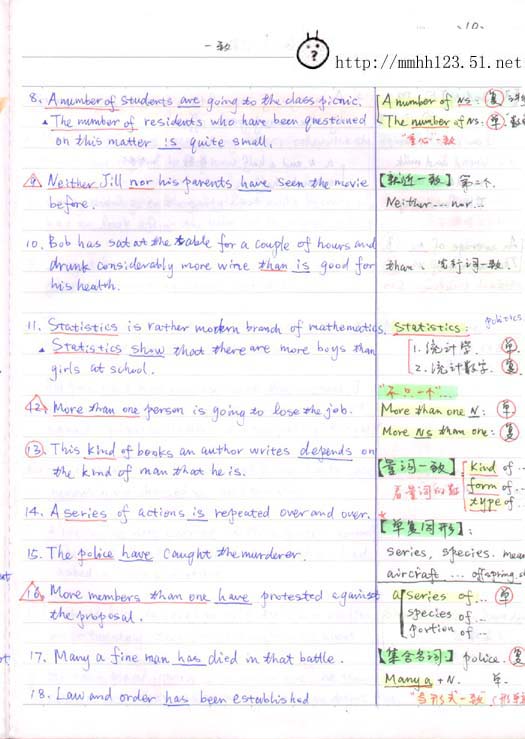 10.
一致
?
http://mmhh123.51.net
8. A number of students are going to the class picnic.
The number of residents who have been questioned
on this matter is quite small.
9. Neither Jill nor his parents have seen the movie
before.
10. Bob has sat at the table for a couple of hours and
drunk considerably more wine than is good for
his health.
11. Statistics is rather modern branch of mathematics.
Statistics show that there are more boys than
girls at school.
12. More than one person is going to lose the job.
13. This kind of books an author writes depends on
the kind of man that he is.
14. A series of actions is repeated over and over.
15. The police have caught the murderer.
16. More members than one have protested against
the proposal.
17. Many a fine man has died in that battle.
18. Law and order has been established
【A number of Ns: 复
The number of Ns: 单
"重心"一致
【就近一致】第二个.
Neither... nor...
than: 先行词一致.
politics
Statistics:
1. 统计学. 单
2. 统计数字. 复
"不只一个"...
More than one N: 单
More Ns than one: 复
【量词一致】 kind of...
看量词的数 form of...
type of...
【单复同形】:
series, species. mean
aircraft ... offspring
a series of... 单
species of...
portion of...
【集合名词:】police. 复
Many a + N. 单.
"与形式一致"